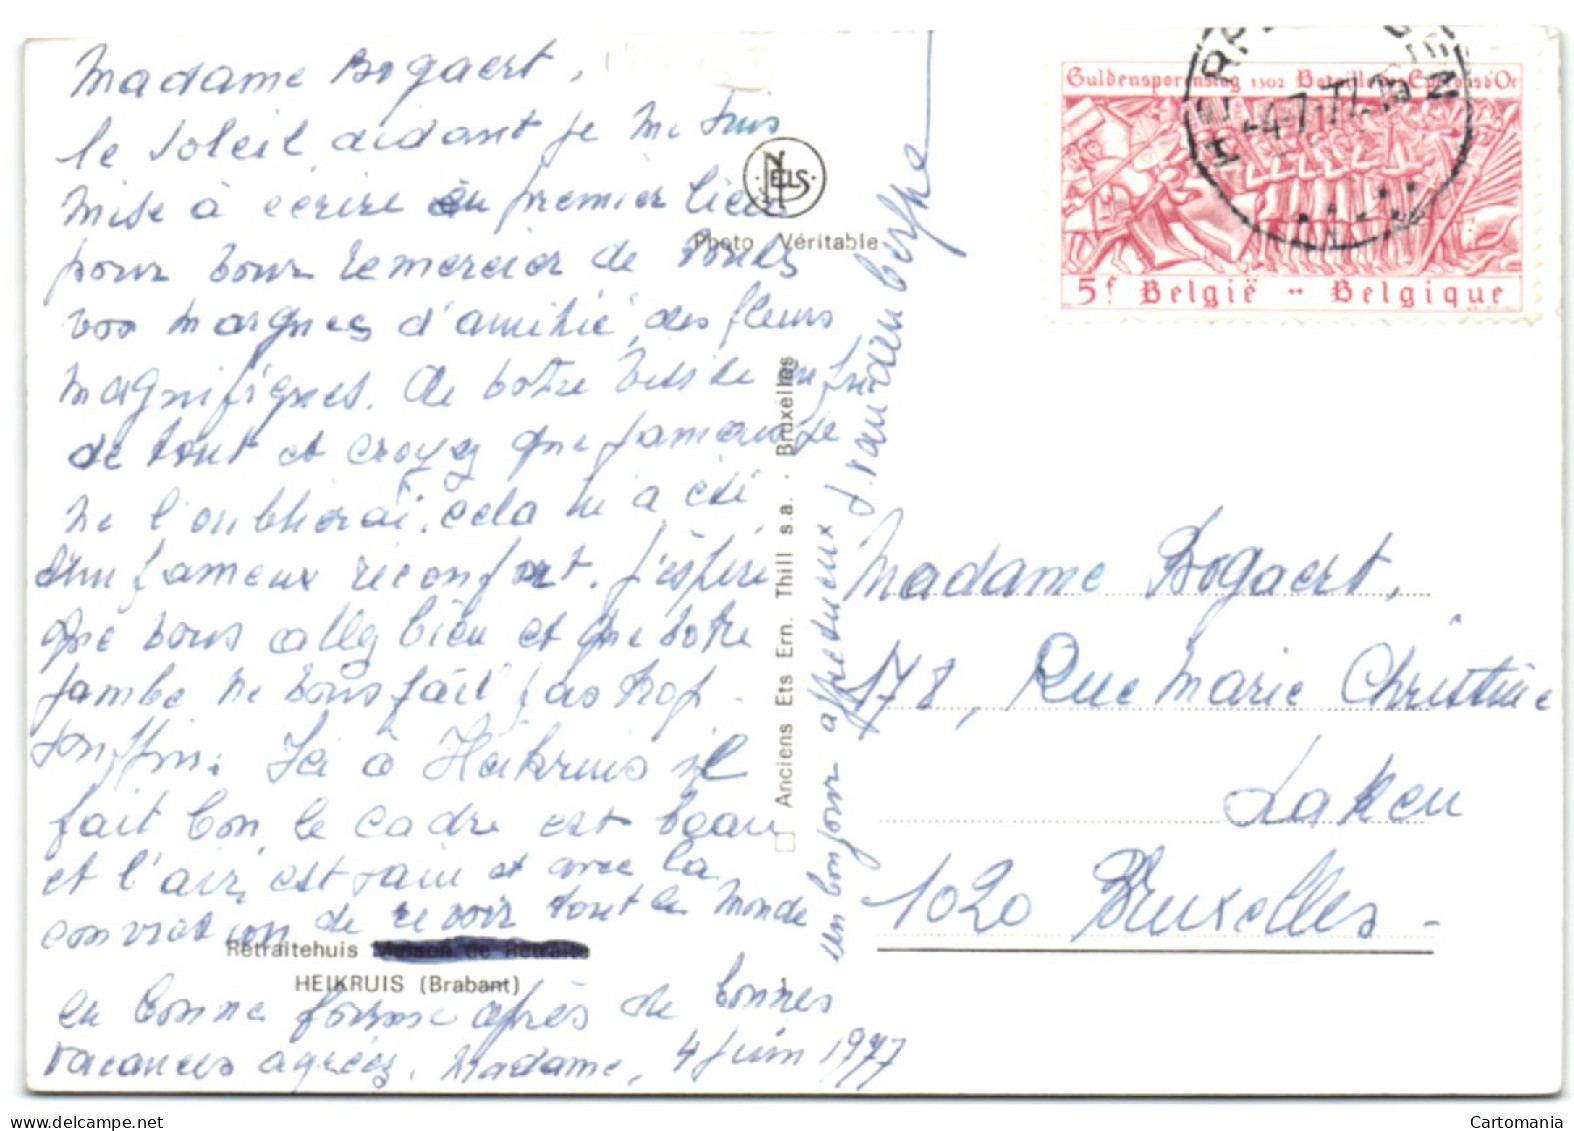 Madame Bogaert,
le soleil aidant je me suis
mise à écrire en premier lieu
pour vous remercier de toutes
vos marques d'amitié, des fleurs
magnifiques. de votre
de tout et croyez que jamais je
ne l'oublierai. cela m'a été
un fameux réconfort. J'espère
que vous allez bien et que votre
jambe ne vous fait pas trop
souffrir. Ici à Heikruis il
fait bon, le cadre est beau
et l'air est sain et avec la
conviction de revoir tout le monde
Retraitehuis Maison de Retraite
HEIKRUIS (Brabant)
1
en bonne forme après de bonnes
vacances agréez, Madame, 4 juin 1977
un bonjour affectueux
NELS
Photo Véritable
Anciens Ets Ern. Thill s.a. · Bruxelles
Guldensporenslag 1302 Bataille Eperons d'Or
-4-7-77
5F België ·· Belgique
Madame Bogaert,
178, Rue Marie Christine
Laken
1020 Bruxelles -
Cartomania